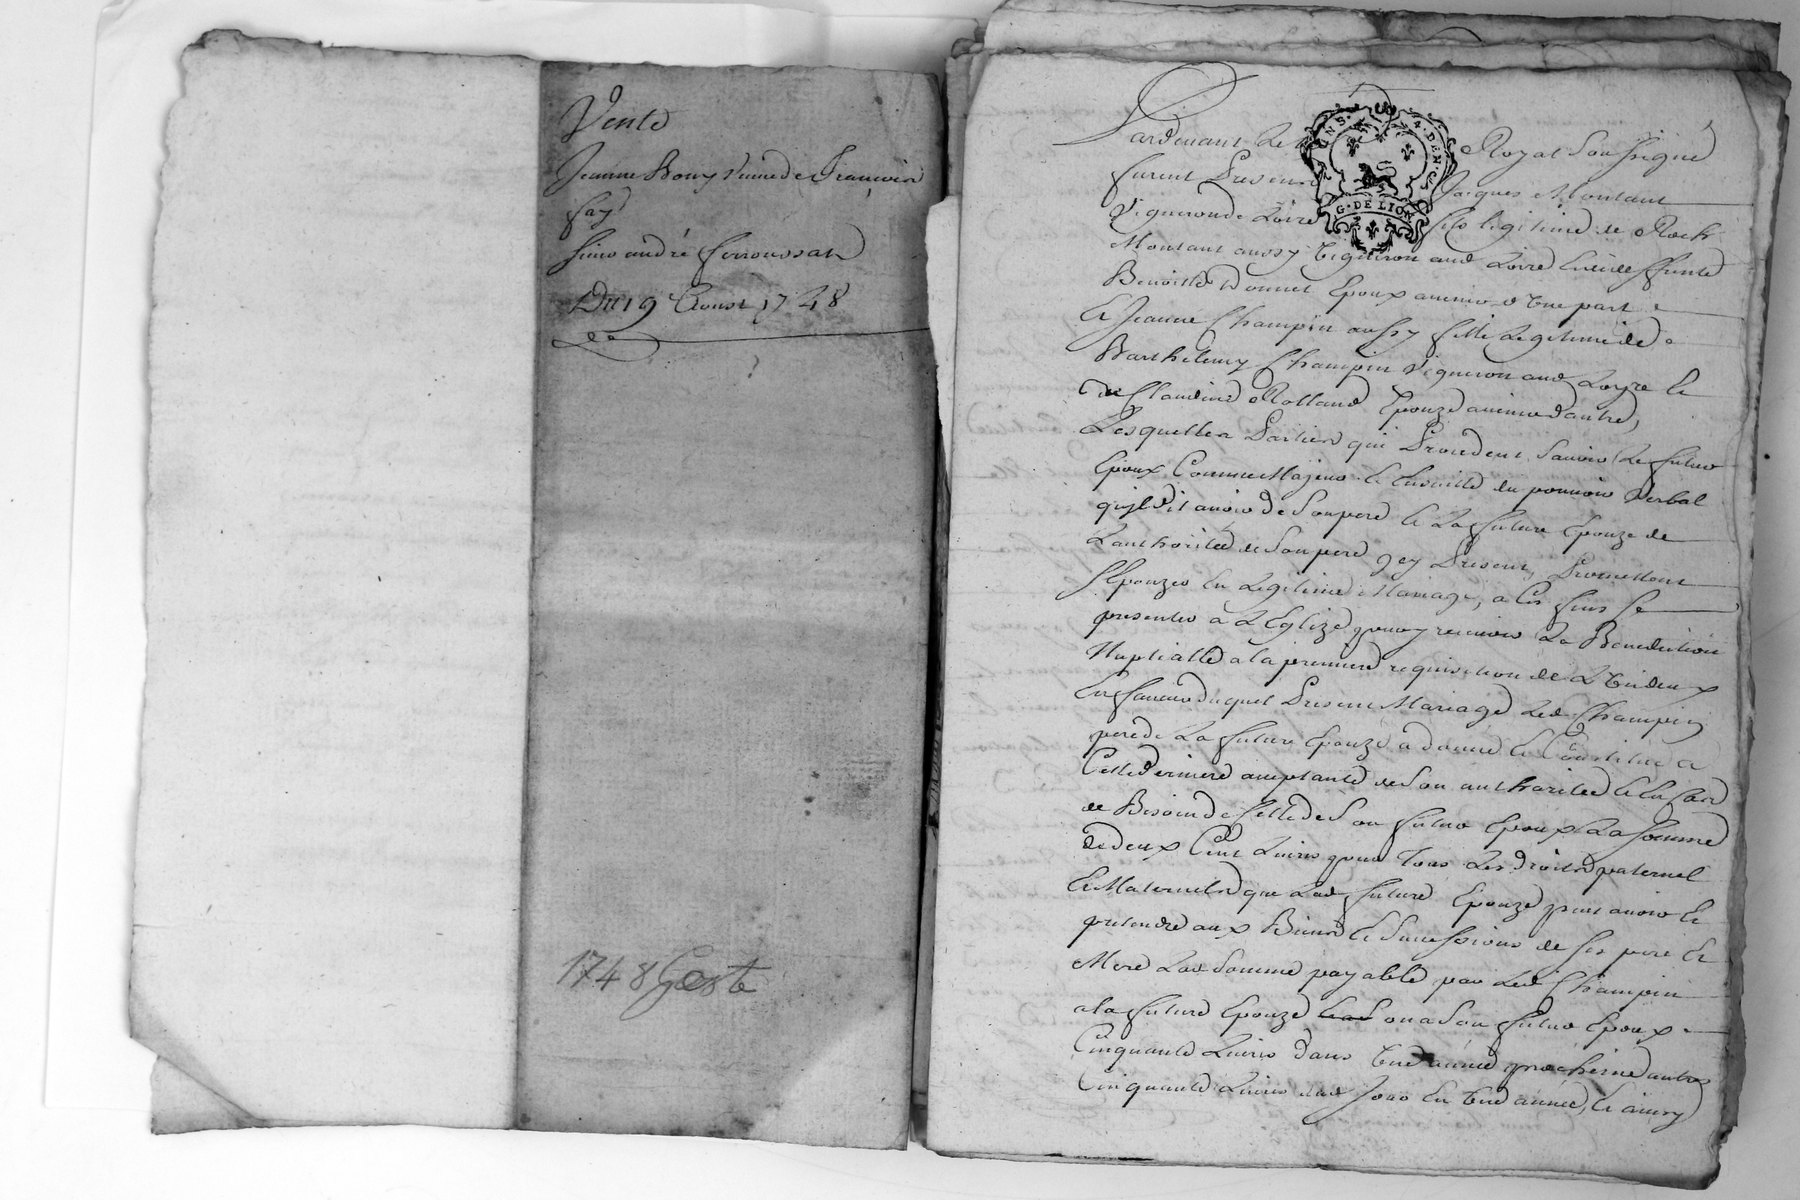 Vente
Jeanne Bouy veuve de François
fay
sieur andré ferroussat
Du 19 Aoust 1748
1748 Geste
GNS. 4. DEN
G. DE LION
Pardevant Le Royal Soussigné
furent Presens Jacques Montant
Vigneron de Loire fils legitime de Roch
Montant aussy Vigneron aud Loire & de deffunte
Benoitte Donnet Epoux avenir d'Une part
Et Jeanne Champin aussy fille Legitime de
Barthelemy Champin Vigneron aud Loyre Et
de Claudine Rolland Epouze avenir d'autre,
Lesquelles Parties qui Procedent Savoir Le futur
Epoux Comme Majeur Et Ensuitte du pouvoir Verbal
qu'il dit avoir de Son pere Et La future Epouze de
L'authoritée de Son pere icy Present, Promettent
S'Epouzer En Legitime Mariage, a Ces fins Se
presenter a L'Eglize pour y recevoir La Benediction
Nuptialle a la premiere requisition de L'Un d'eux
En faveur duquel Present Mariage Led Champin
pere de La future Epouze a donné Et Constitué a
Cette derniere acceptante de Son authoritée Et En Cas
de Besoin de Celle de Son futur Epoux La Somme
de deux Cent Livres pour Tous Les droits paternel
Et Maternels que Lad future Epouze peut avoir Et
pretendre aux Biens Et Successions de Ses pere Et
Mere Lad Somme payable par Led Champin
a la future Epouze ou a Son futur Epoux
Cinquante Livres dans Une année prochaine autres
Cinquante Livres dud Jour En Une année, Et ainsy